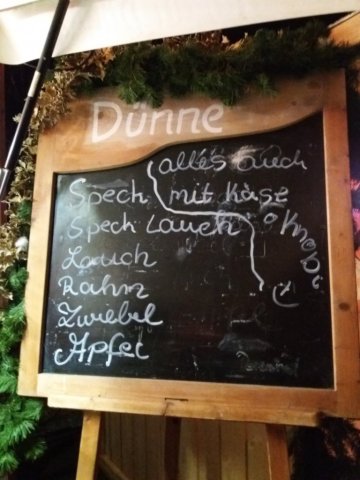 Dünne
alles auch
Spech mit Käse
Spech Lauch
o Knobi
Lauch
Rahm
Zwiebel
Apfel